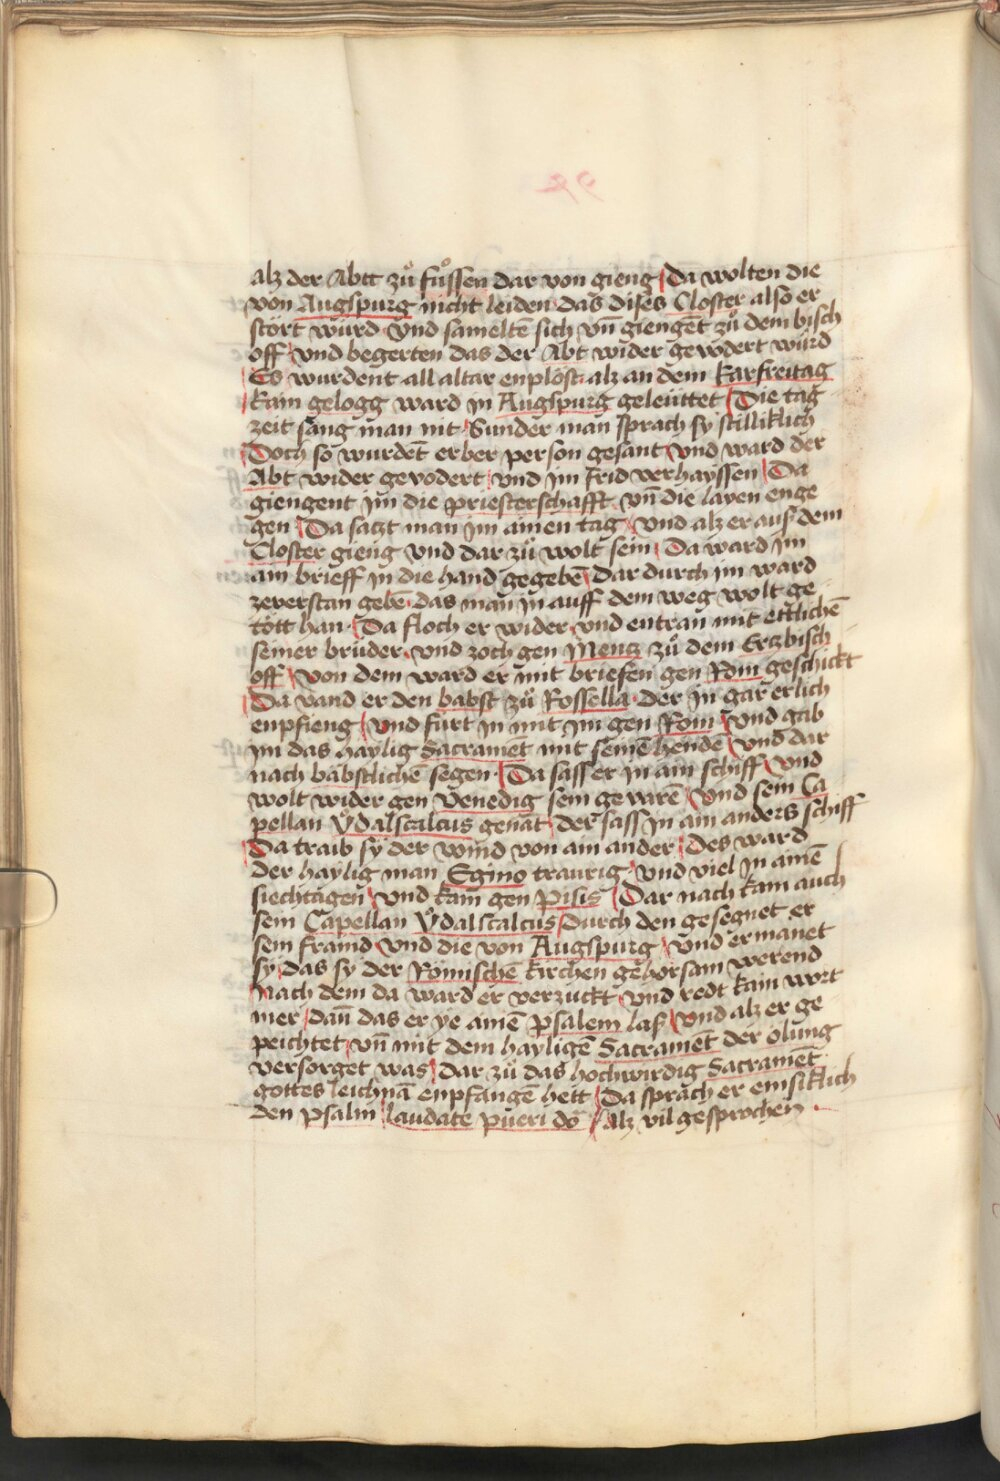 alz der Abtt zů fůssen dar von gieng Da wolten die
von Augspurg nicht leiden das dises Closter also er
stört würd vnd samelte͂ sich vn͂ gienge͂t zů dem bisch
off vnd begerten das der Abt wider gevodert würd
Es wurdent all altar enplöst alz an dem karfreitag
kain gelogg ward in Augspurg geleüttet Die tag
zeit sang man nit Sunder man sprach sy stilliklich
Doch so wurde͂t erber person gesant vnd ward der
Abt wider gevodert vnd im frid verhayssen Da
giengent im die priesterschafft vn͂ die layen enge
gen Da satzt man im ainen tag vnd alz er aus dem
Closter gieng vnd dar zů wolt sein Da ward im
ain brieff in die hand gegebe͂ Dar durch im ward
zeverstan gebe͂ das man in auff dem weg wolt ge
tött han Da floch er wider vnd entran mit ettliche͂
seiner brüder vnd zoch gen Mentz zů dem Ertzbisch
off von dem ward er mit briefen gen Rom geschickt
Da vand er den babst zů Rossella der in gar erlich
enpfieng vnd fürt in mit im gen Rom vnd gab
im das haylig Sacrame͂t mit seine͂ hende͂ vnd dar
nach bäbstliche͂ segen Da sass er in ain schiff vnd
wolt wider gen Venedig sein gevare͂ vnd sein Ca
pellan Vͦdalscalcus gena͂t der sass in ain anders schiff
Da traib sy der wind von ain ander Des ward
der haylig man Egino traurig vnd viel in aine͂
siechtagen vnd kam gen Pisis Dar nach kam auch
sein Capellan Vͦdalscalcus Durch den gesegnet er
sein fraind vnd die von Augspurg vnd ermanet
sy das sy der Römische͂ kirchen gehorsam werend
Nach dem da ward er verzuckt vnd redt kain wort
mer dan das er ye aine͂ psalem las vnd alz er ge
peichtet vn͂ mit dem haylige͂ Sacrame͂t der ölung
versorget was dar zů das hochwirdig Sacrame͂t
gottes leichna͂ enpfange͂ hett Da sprach er emsiklich
den psalm laudate pueri do͂ Alz vil gesprochen